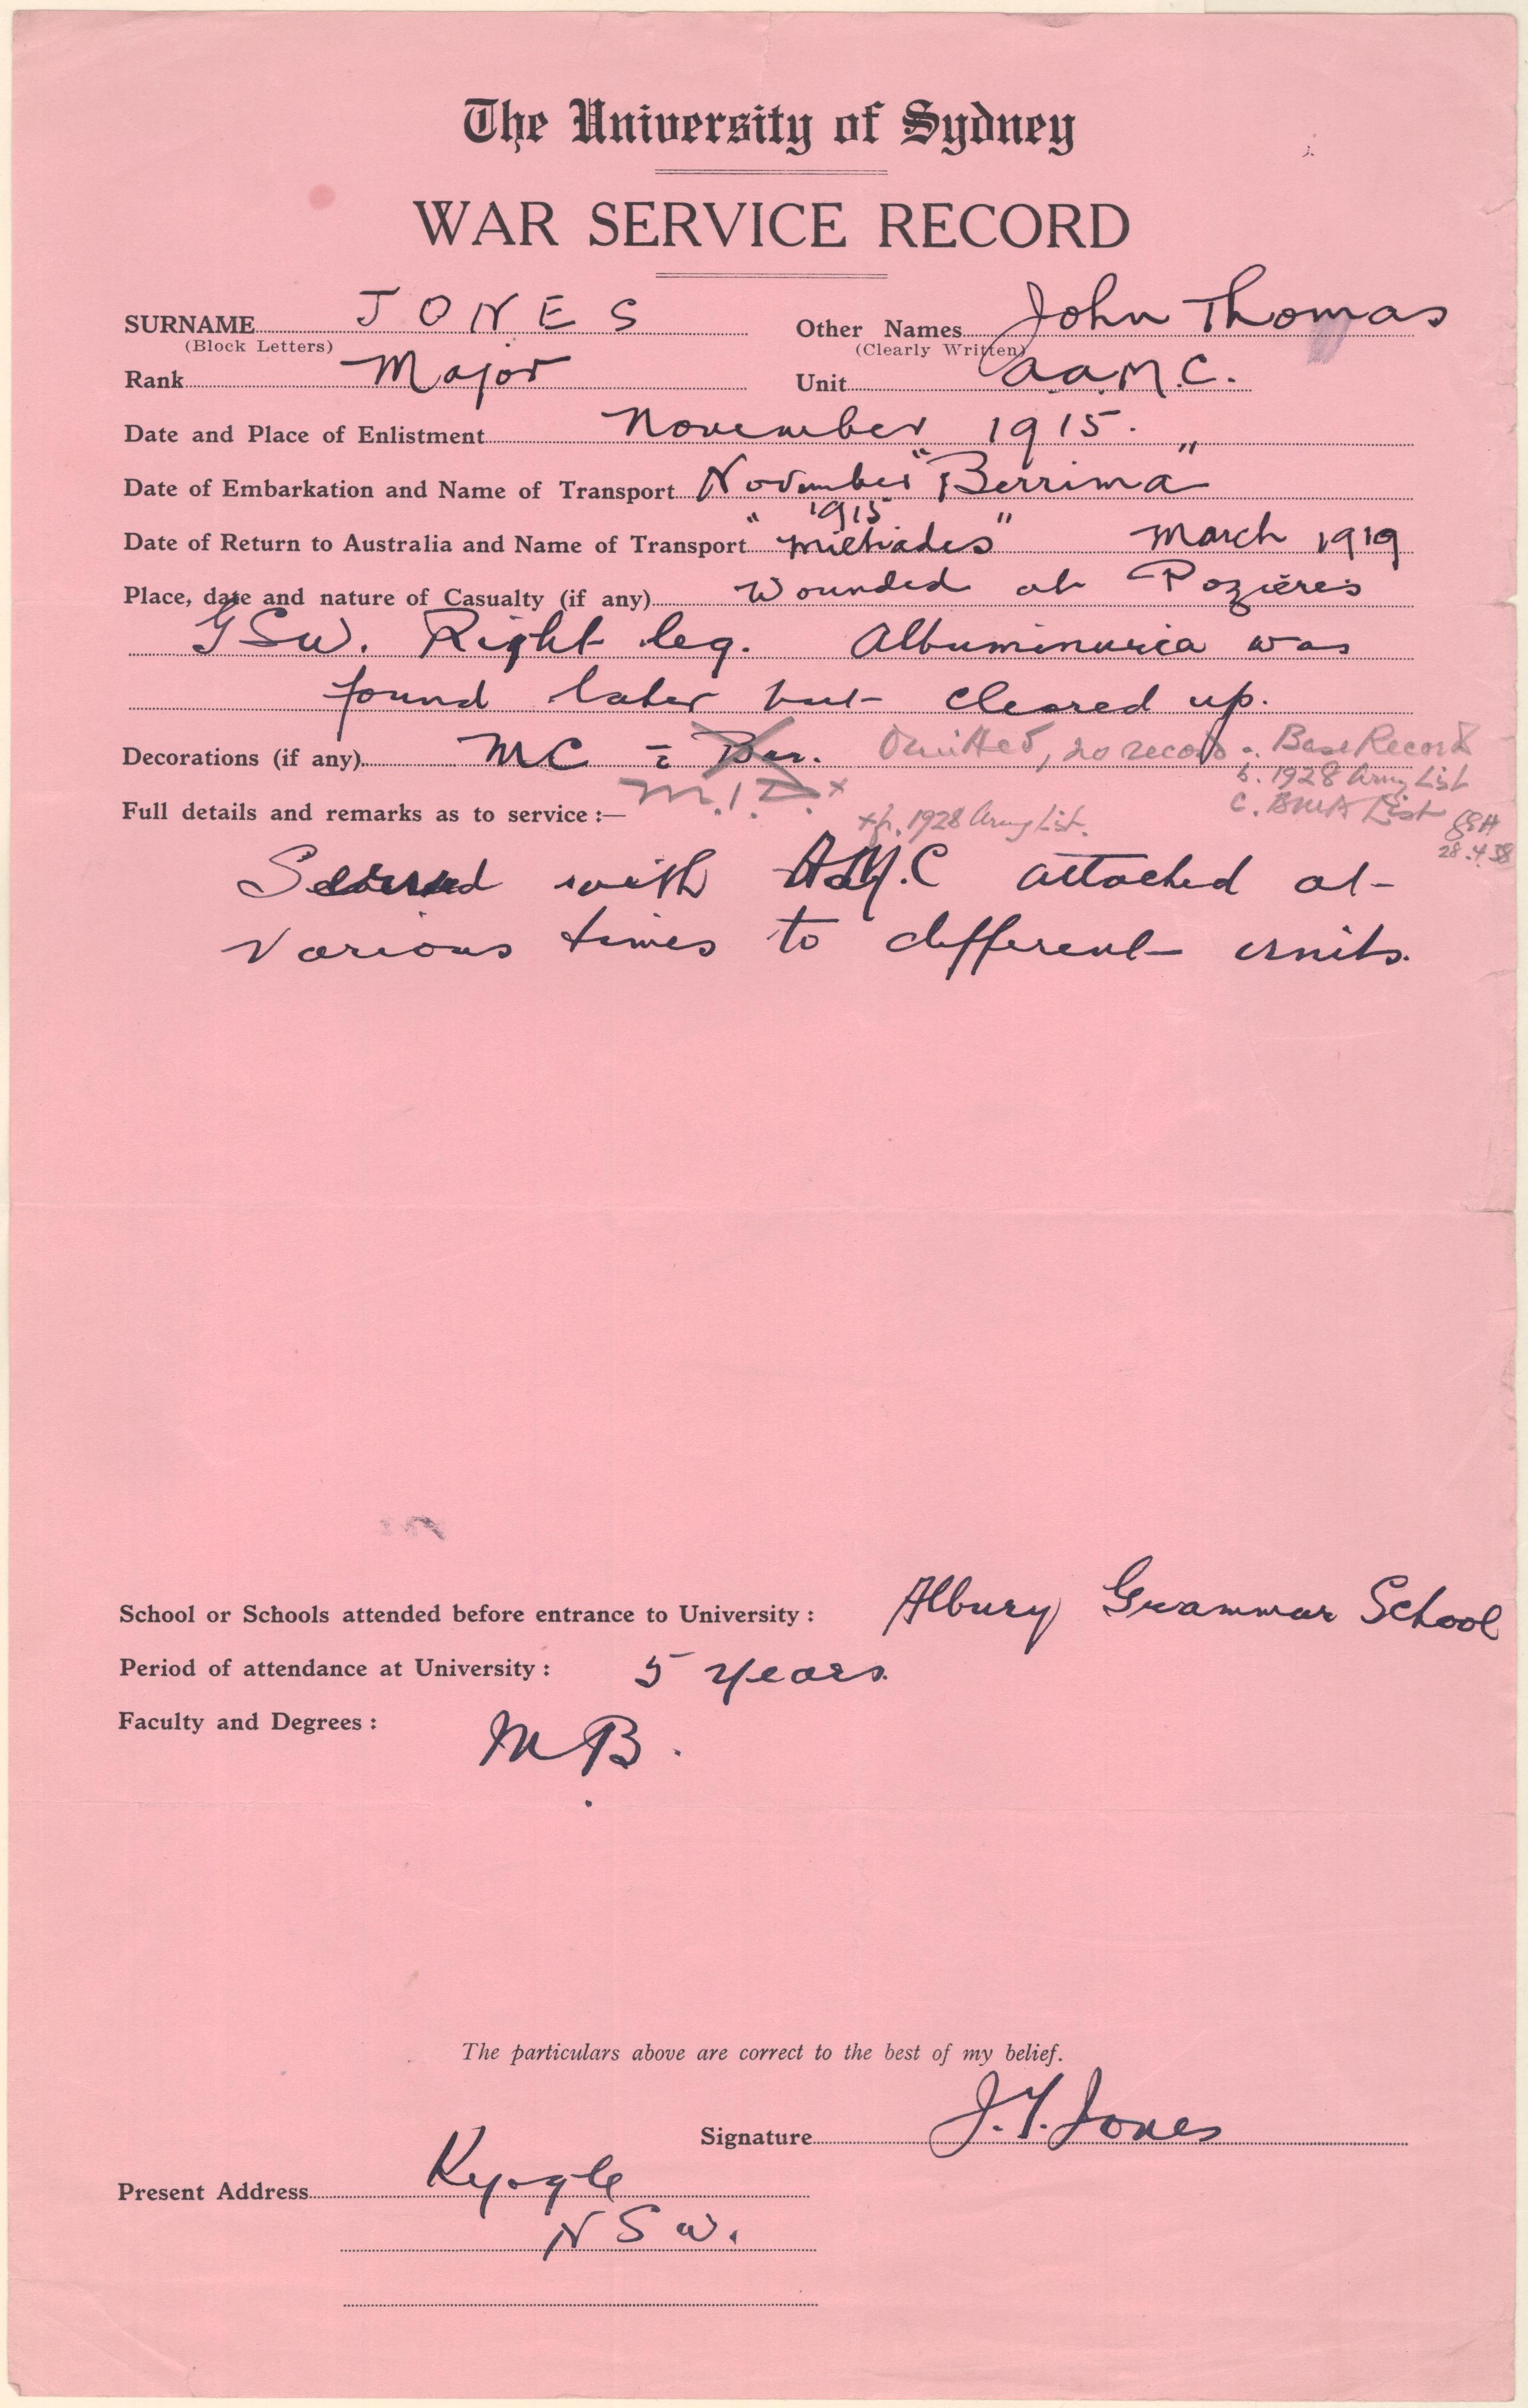 The University of Sydney
WAR SERVICE RECORD
SURNAME JONES Other Names John Thomas
(Block Letters) (Clearly Written)
Rank Major Unit A.A.M.C.
Date and Place of Enlistment November 1915.
Date of Embarkation and Name of Transport November "Berrima"
1915
Date of Return to Australia and Name of Transport "Miltiades" March 1919
Place, date and nature of Casualty (if any) Wounded at Pozières
GSW. Right leg. Albuminuria was
found later but cleared up.
Decorations (if any) MC c̄ Bar. Omitted, no record a. Base Records
M.I.D. x b. 1928 Army List
Full details and remarks as to service :— x fr. 1928 Army List. c. BMA List
28.4.38
Served with AMC attached at
various times to different units.
School or Schools attended before entrance to University : Albury Grammar School
Period of attendance at University : 5 years.
Faculty and Degrees : MB.
The particulars above are correct to the best of my belief.
Signature J.T. Jones
Present Address Kyogle
NSW.